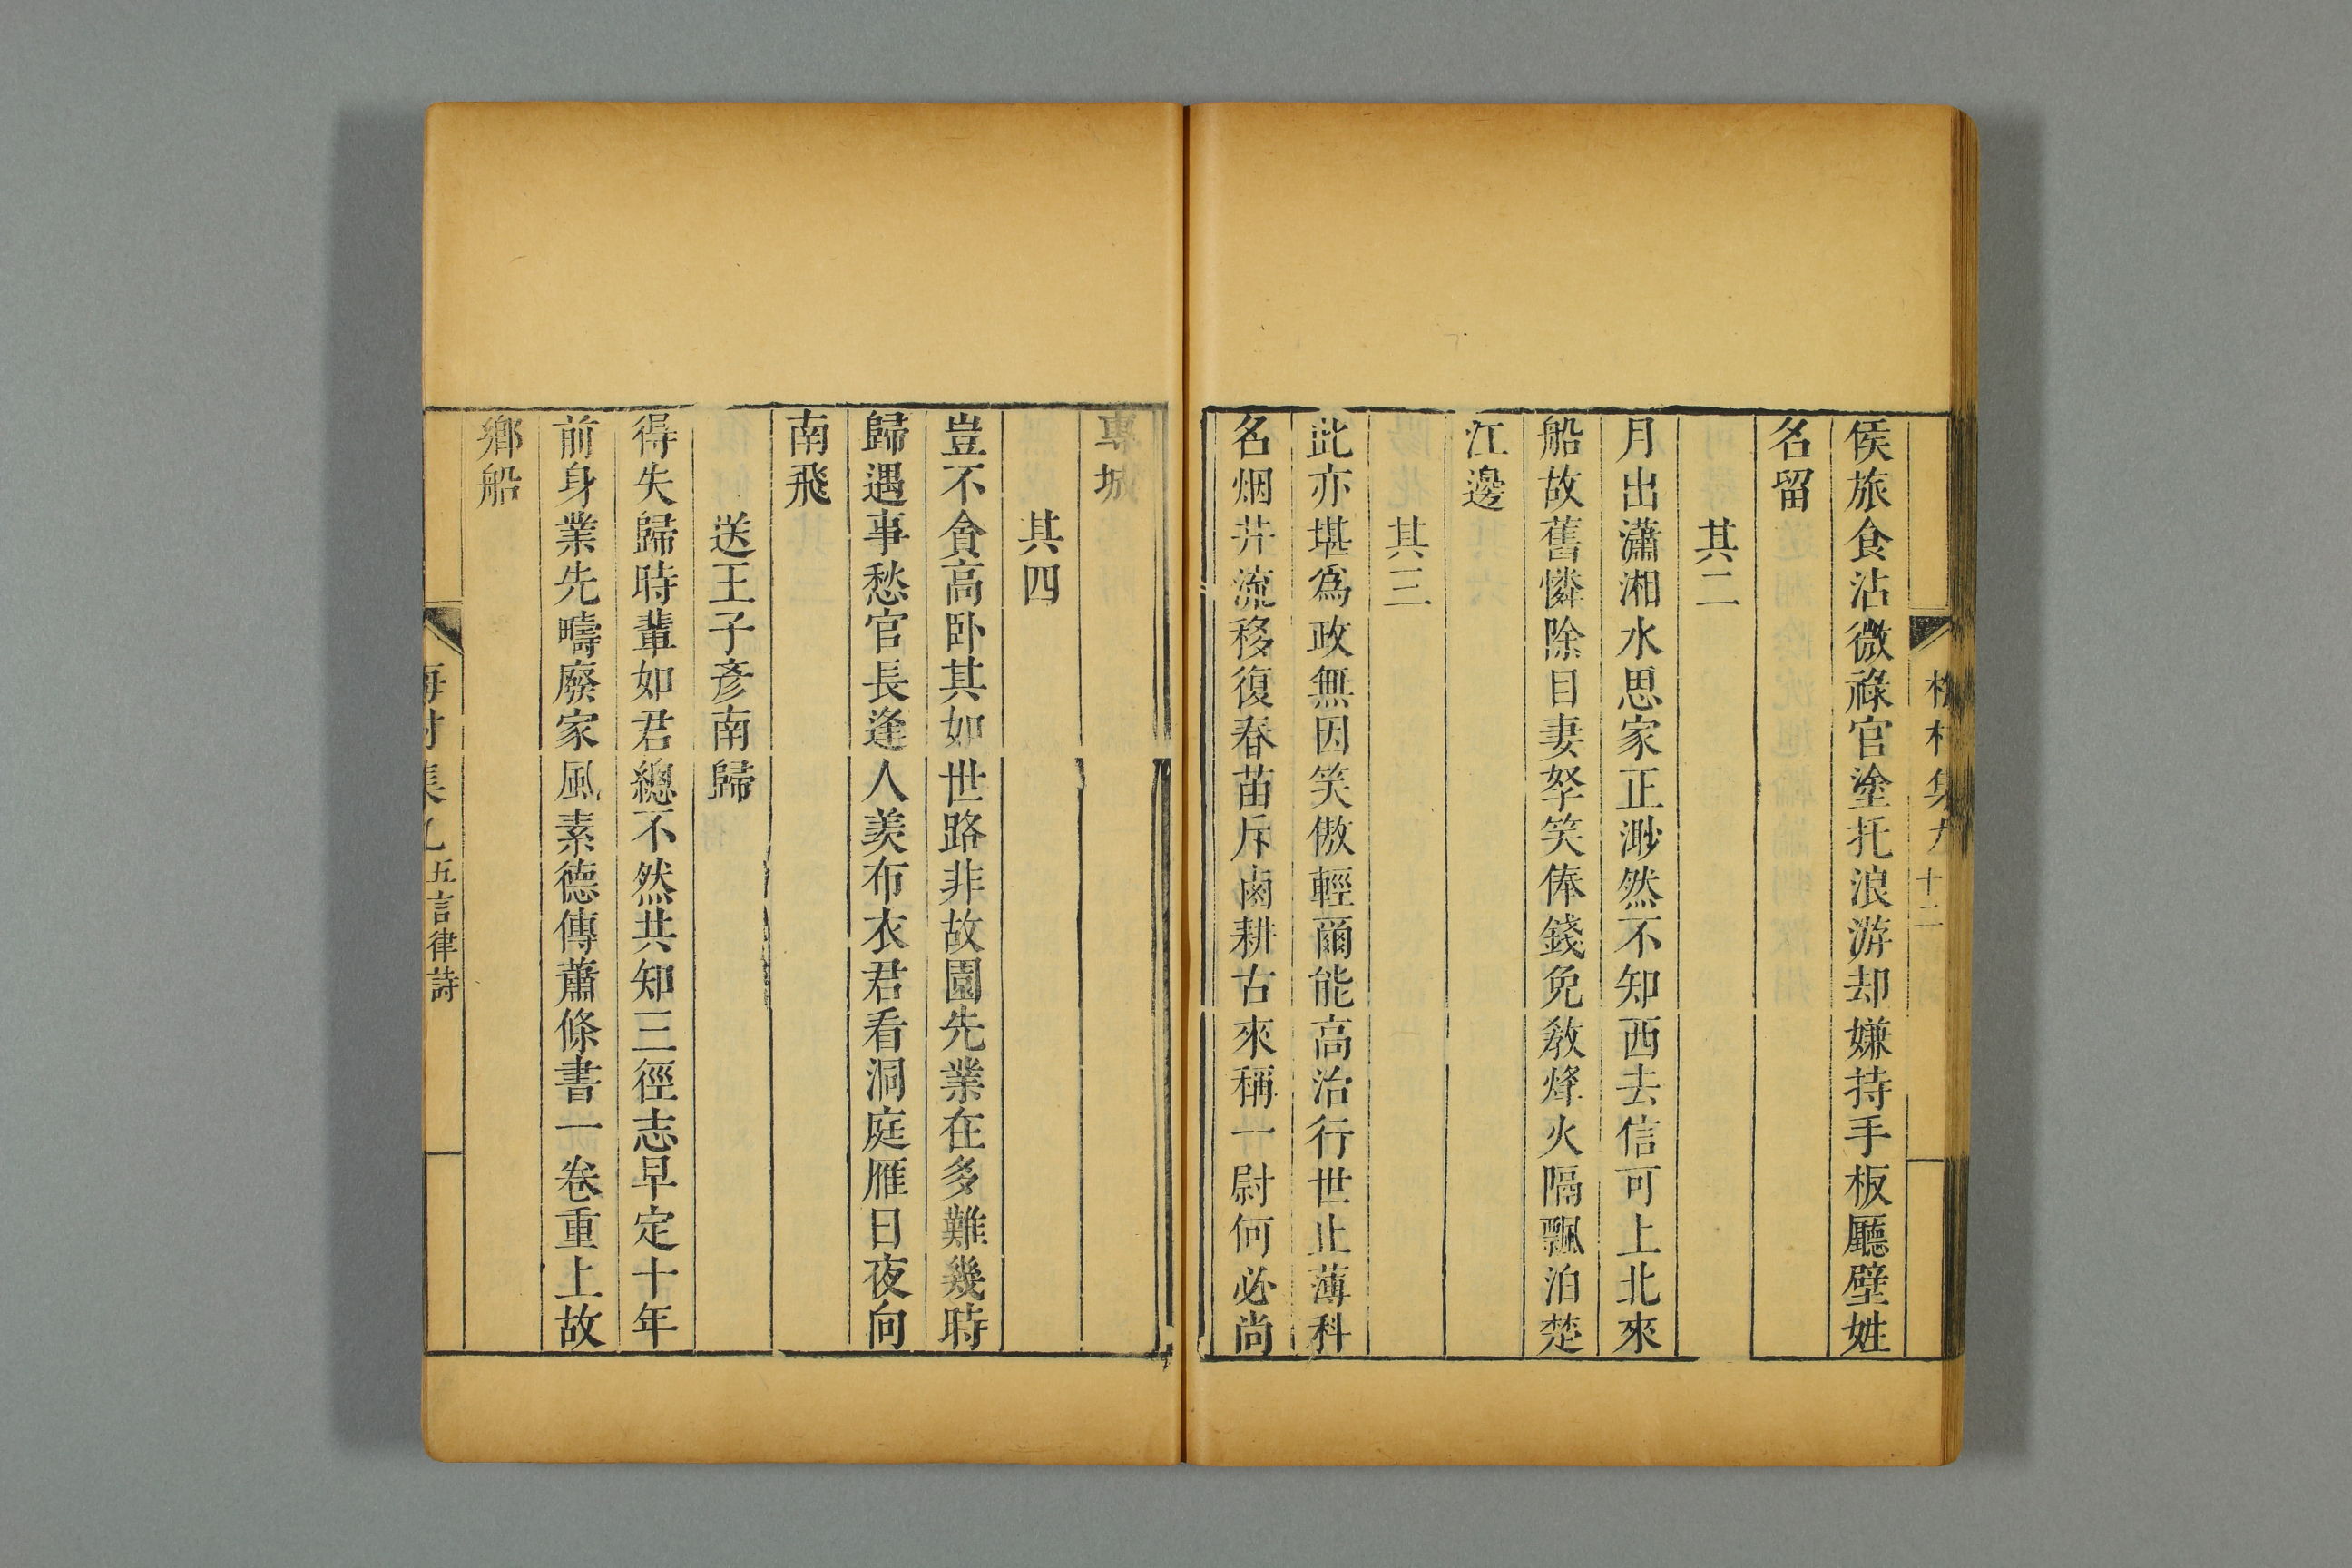 侯旅食沾微祿官塗托浪游却嫌持手板廳壁姓
名留
其二
月出瀟湘水思家正渺然不知西去信可上北來
船故舊憐除目妻孥笑俸錢免教烽火隔飄泊楚
江邊
其三
此亦堪爲政無因笑傲輕爾能高治行世止薄科
名烟井流移復春苗斥鹵耕古來稱一尉何必尚
專城
其四
豈不貪高卧其如世路非故園先業在多難幾時
歸遇事愁官長逢人羨布衣君看洞庭雁日夜向
南飛
送王子彥南歸
得失歸時輩如君總不然共知三徑志早定十年
前身業先疇廢家風素德傳蕭條書一卷重上故
鄉船
五言律詩